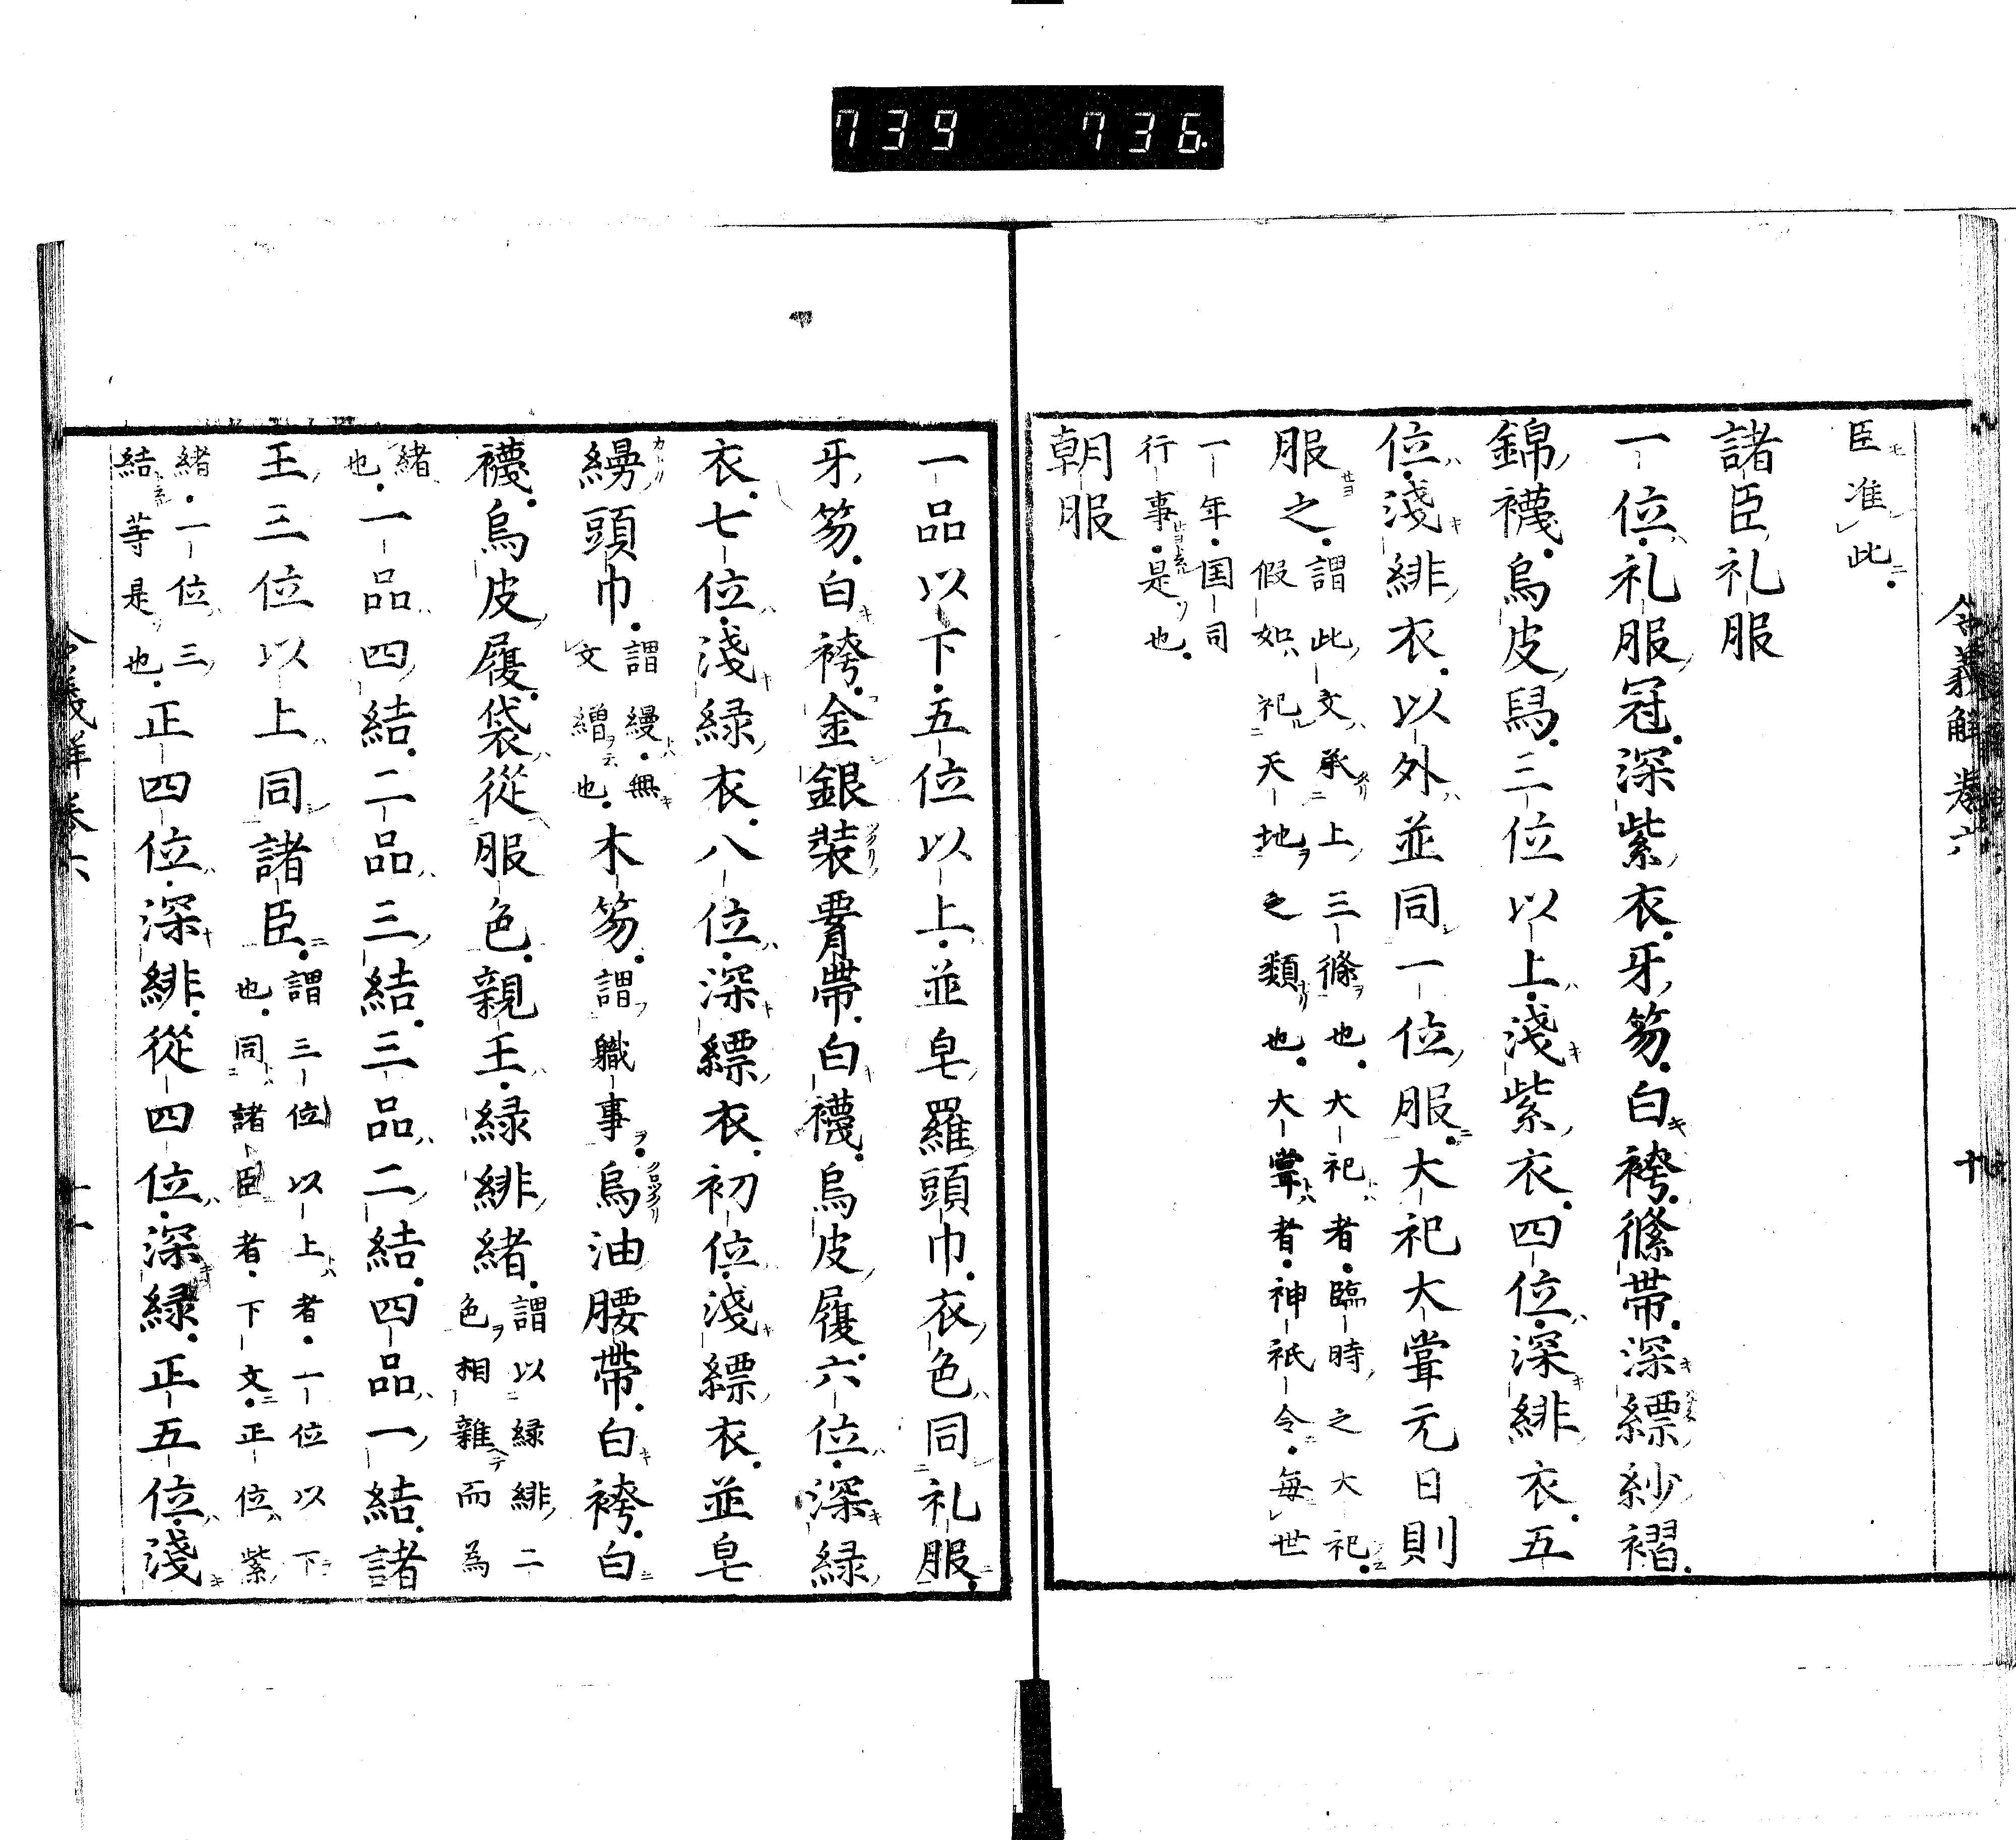 739 736
令義解 巻六 十
臣准此
諸臣礼服
一位礼服冠深紫衣牙笏白袴絛帯深縹紗褶
錦襪烏皮舄三位以上淺紫衣四位深緋衣五
位淺緋衣以外並同一位服大祀大甞元日則
服之謂此文承上三條也大祀者臨時之大祀
假如祀天地之類也大甞者神祇令毎世
一年国司
行事是也
朝服
一品以下五位以上並皂羅頭巾衣色同礼服
牙笏白袴金銀装賮帶白襪烏皮履六位深緑
衣七位淺緑衣八位深縹衣初位淺縹衣並皂
縵頭巾謂縵無
文繒也木笏謂職事烏油腰帶白袴白
襪烏皮履袋從服色親王緑緋緒謂以緑緋二
色相雜而為
緒
也一品四結二品三結三品二結四品一結諸
王三位以上同諸臣謂三位以上者一位以下
也同諸臣者下文正位紫
緒一位三
結等是也正四位深緋從四位深緑正五位淺
令義解巻六 十一